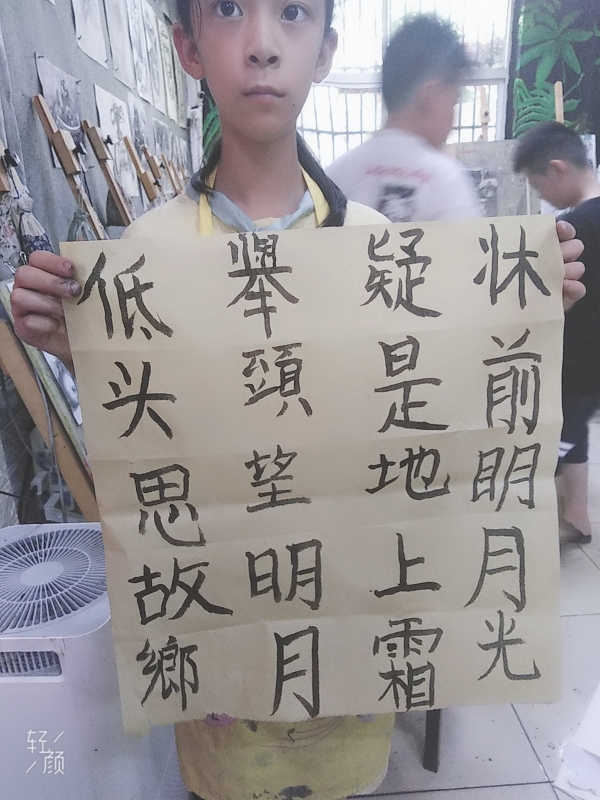 牀前明月光
疑是地上霜
舉頭望明月
低头思故鄉
轻颜